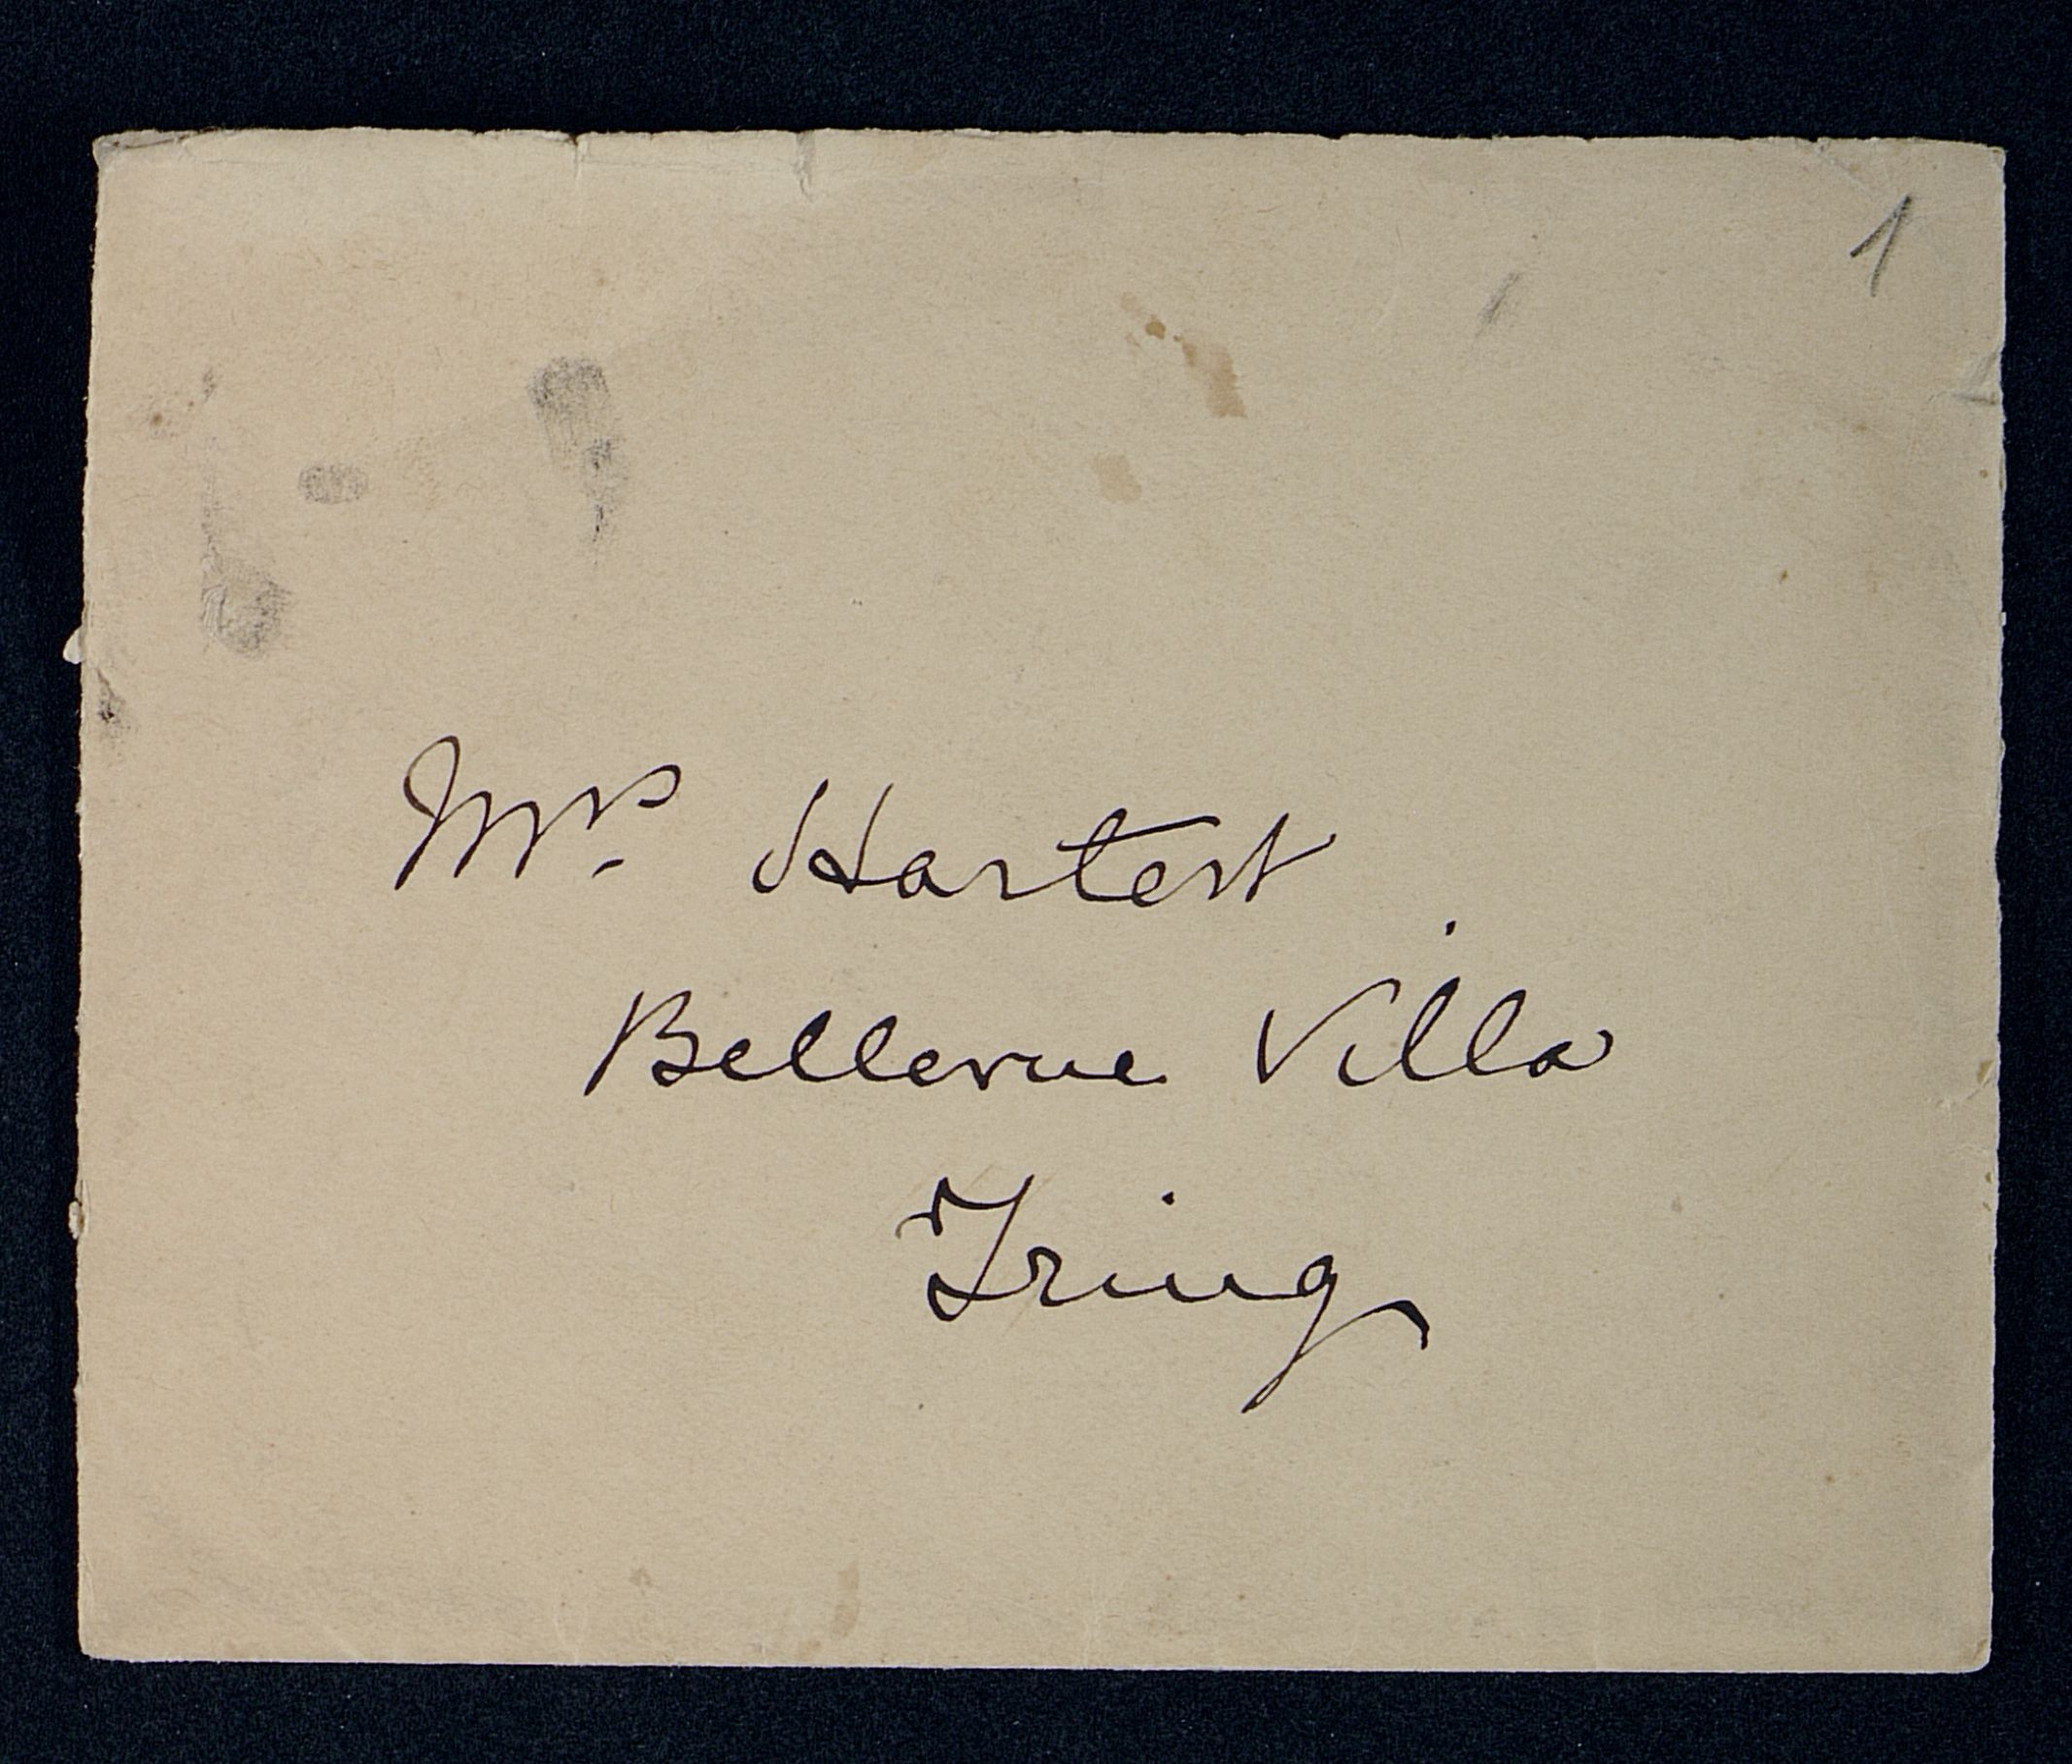 1
Mrs. Hartert
Bellevue Villa
Tring